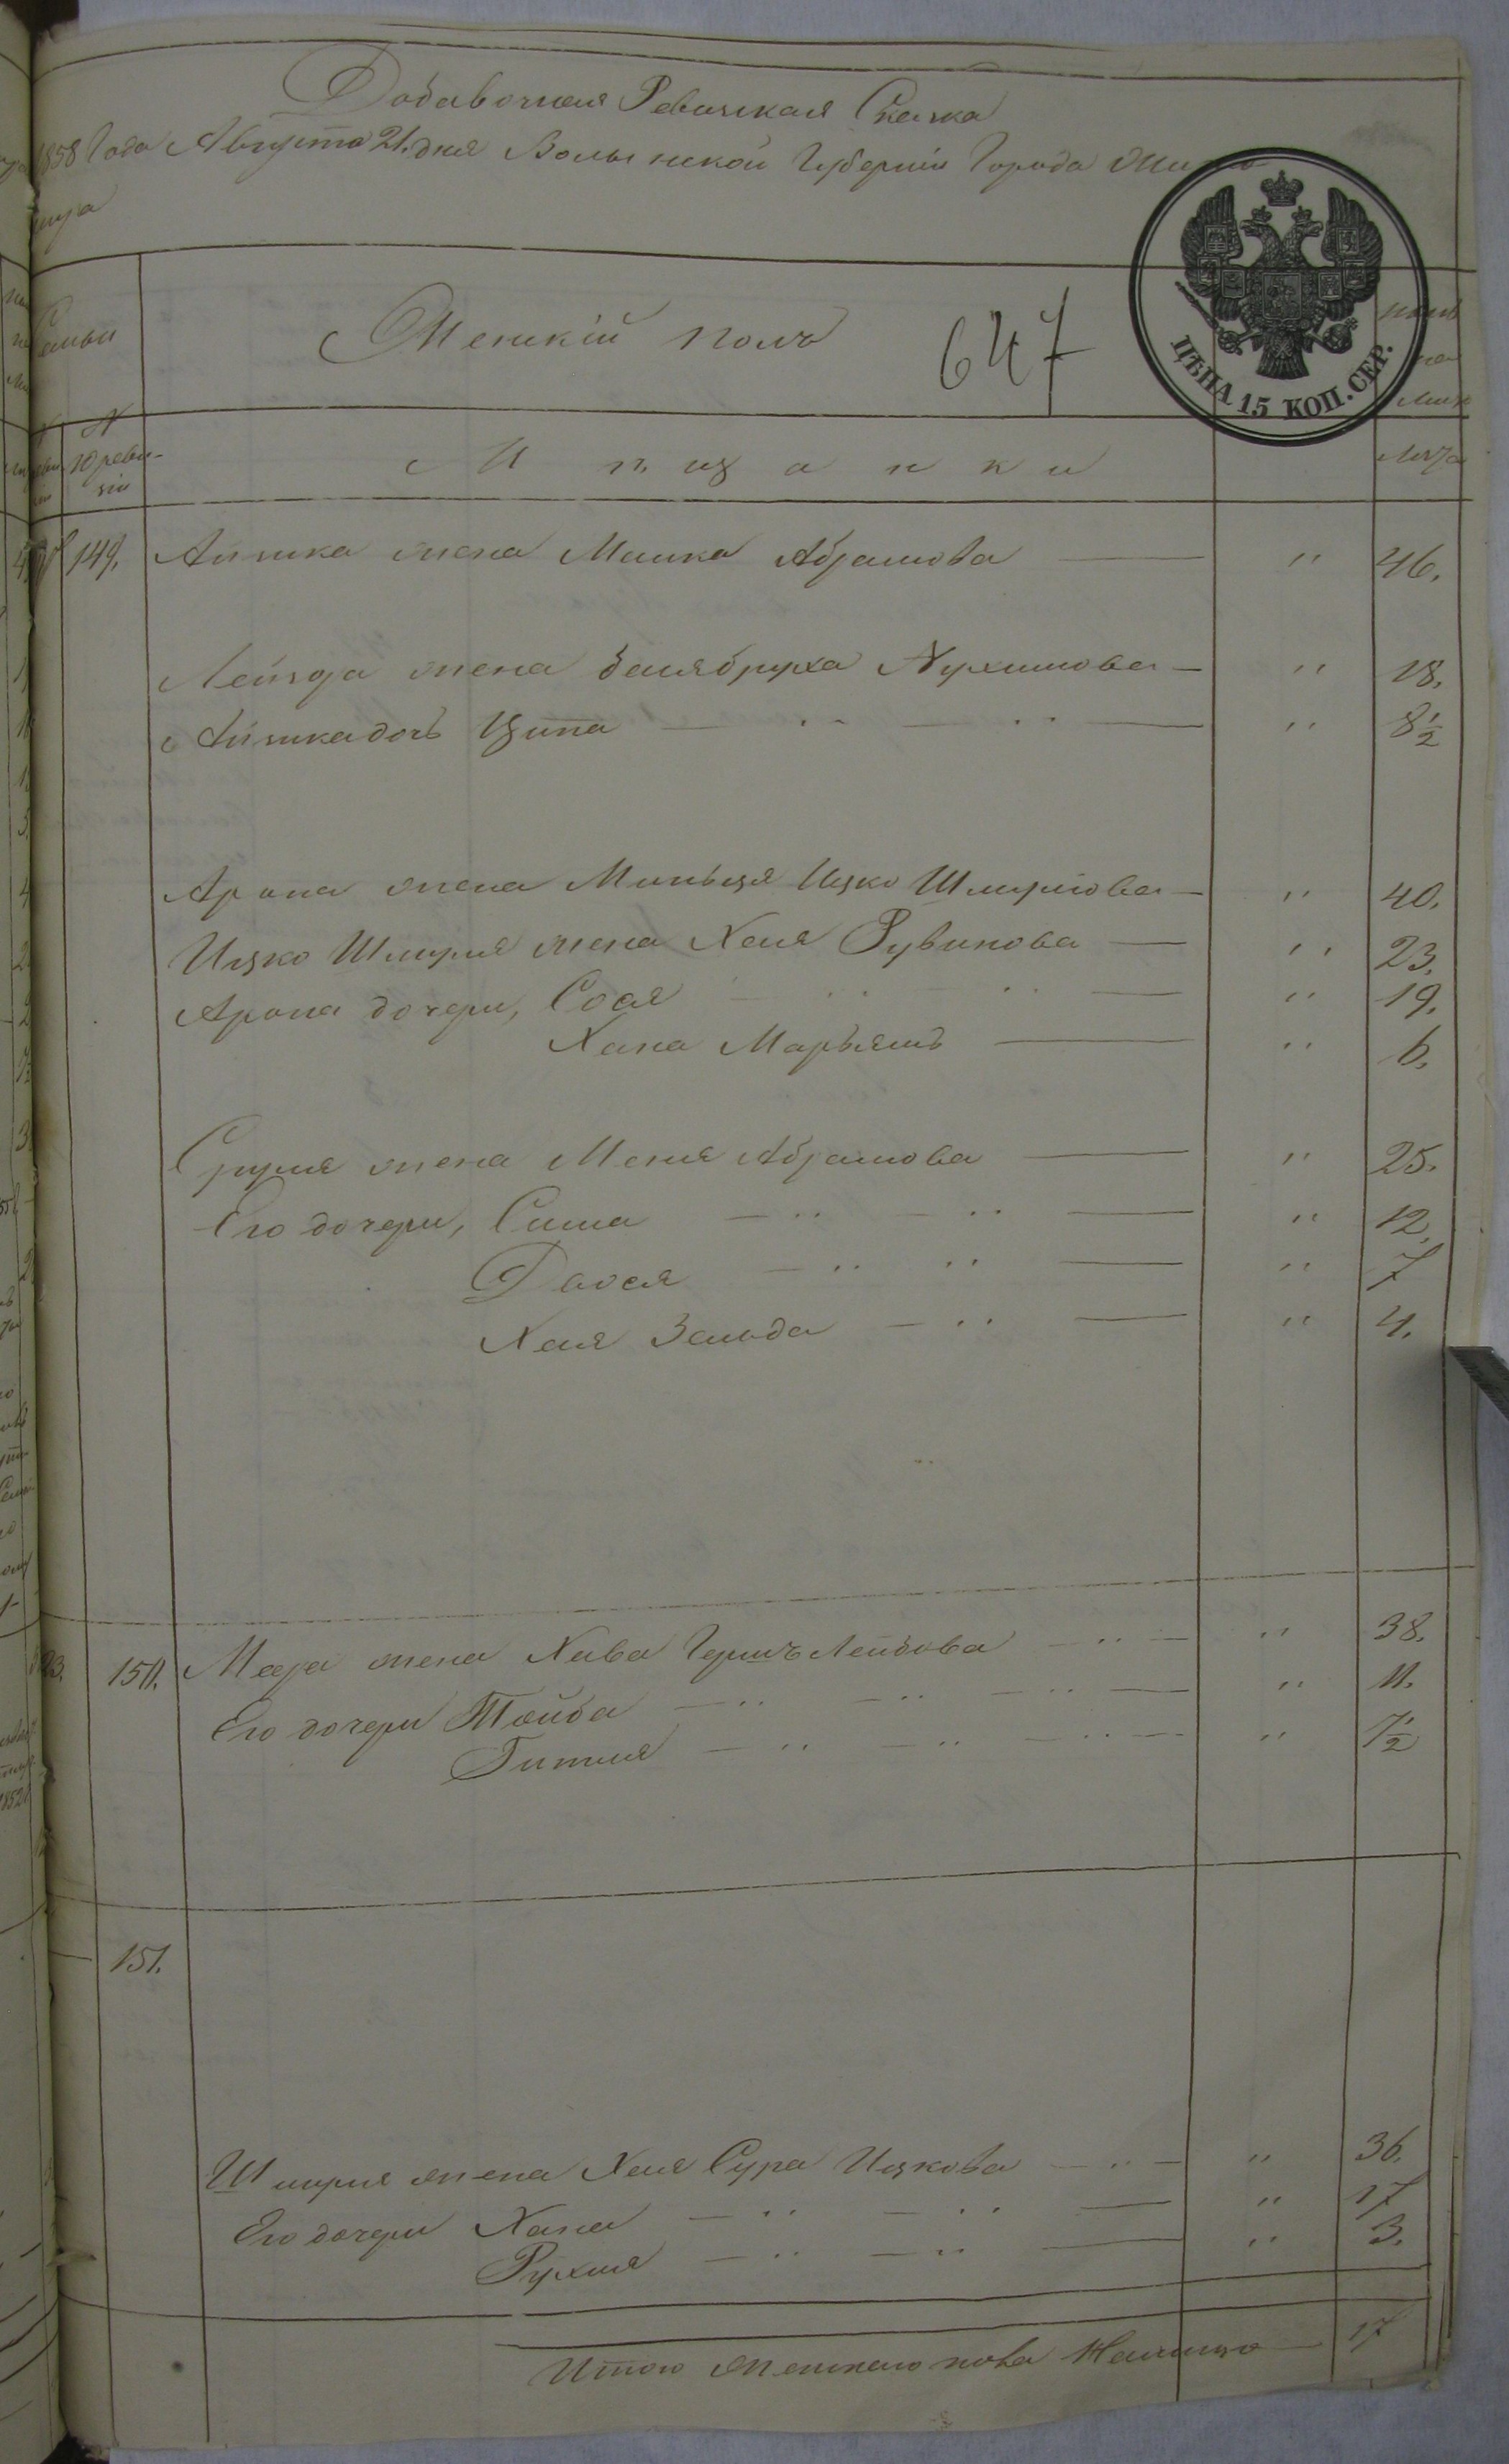 Добавочная Ревизская Сказка
1858 Года Августа 21. дня Волынской Губерніи Города Жито
мира
Семьи
Женскій полъ
647
ЦѢНА 15 КОП. СЕР.
N
10 реви-
зіи
Мѣщанки
Лѣта
149.
Аншка жена Машка Абрамова " 46.
Лейзора жена Баябруха Нухимова " 18.
Аншка дочь Ципа " 8½
Арона жена Миньця Ицко Шмулiова " 40.
Ицко Шмуля жена Хая Рувинова " 23.
Арона дочери, Сося " 19.
Хана Марьямъ " 6.
Сруля жена Меня Абрамова " 25.
Его дочери, Сима " 12.
Двося " 7
Хая Зельда " 4.
150. Меера жена Хава Гершъ Лейбова " 38.
Его дочери Тойба " 11.
Гитля " 7½
151.
Шмуля жена Хая Сура Ицкова " 36.
Его дочери Хана " 17
Рухля " 3.
Итого женскаго пола На лицо 17